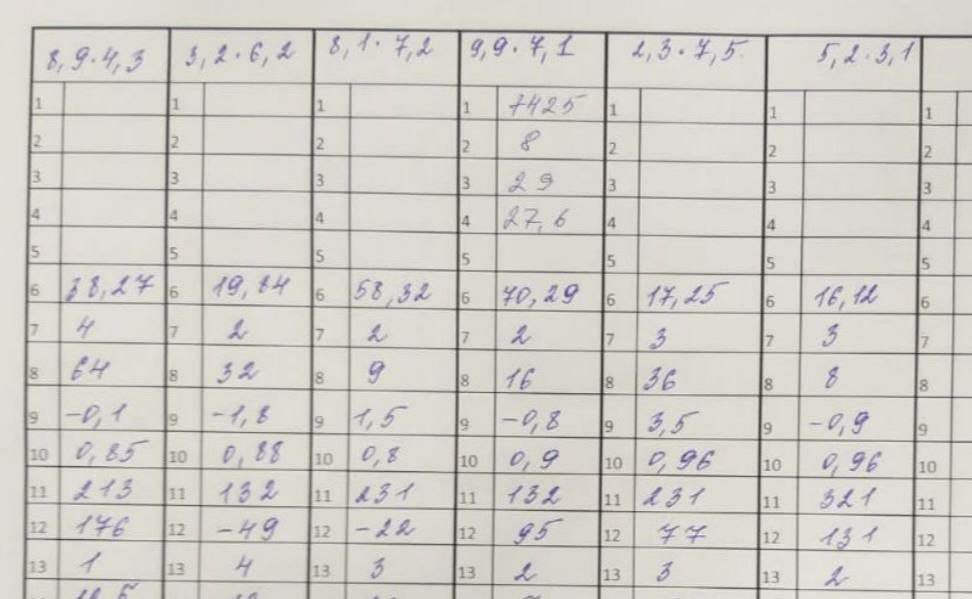 8,9·4,3 3,2·6,2 8,1·7,2 9,9·7,1 2,3·7,5 5,2·3,1
1 1 1 1 7425 1 1 1
2 2 2 2 8 2 2 2
3 3 3 3 29 3 3 3
4 4 4 4 27,6 4 4 4
5 5 5 5 5 5 5
6 38,27 6 19,84 6 58,32 6 70,29 6 17,25 6 16,12 6
7 4 7 2 7 2 7 2 7 3 7 3 7
8 64 8 32 8 9 8 16 8 36 8 8 8
9 -0,1 9 -1,8 9 1,5 9 -0,8 9 3,5 9 -0,9 9
10 0,85 10 0,88 10 0,8 10 0,9 10 0,96 10 0,96 10
11 213 11 132 11 231 11 132 11 231 11 321 11
12 176 12 -49 12 -22 12 95 12 77 12 131 12
13 1 13 4 13 3 13 2 13 3 13 2 13